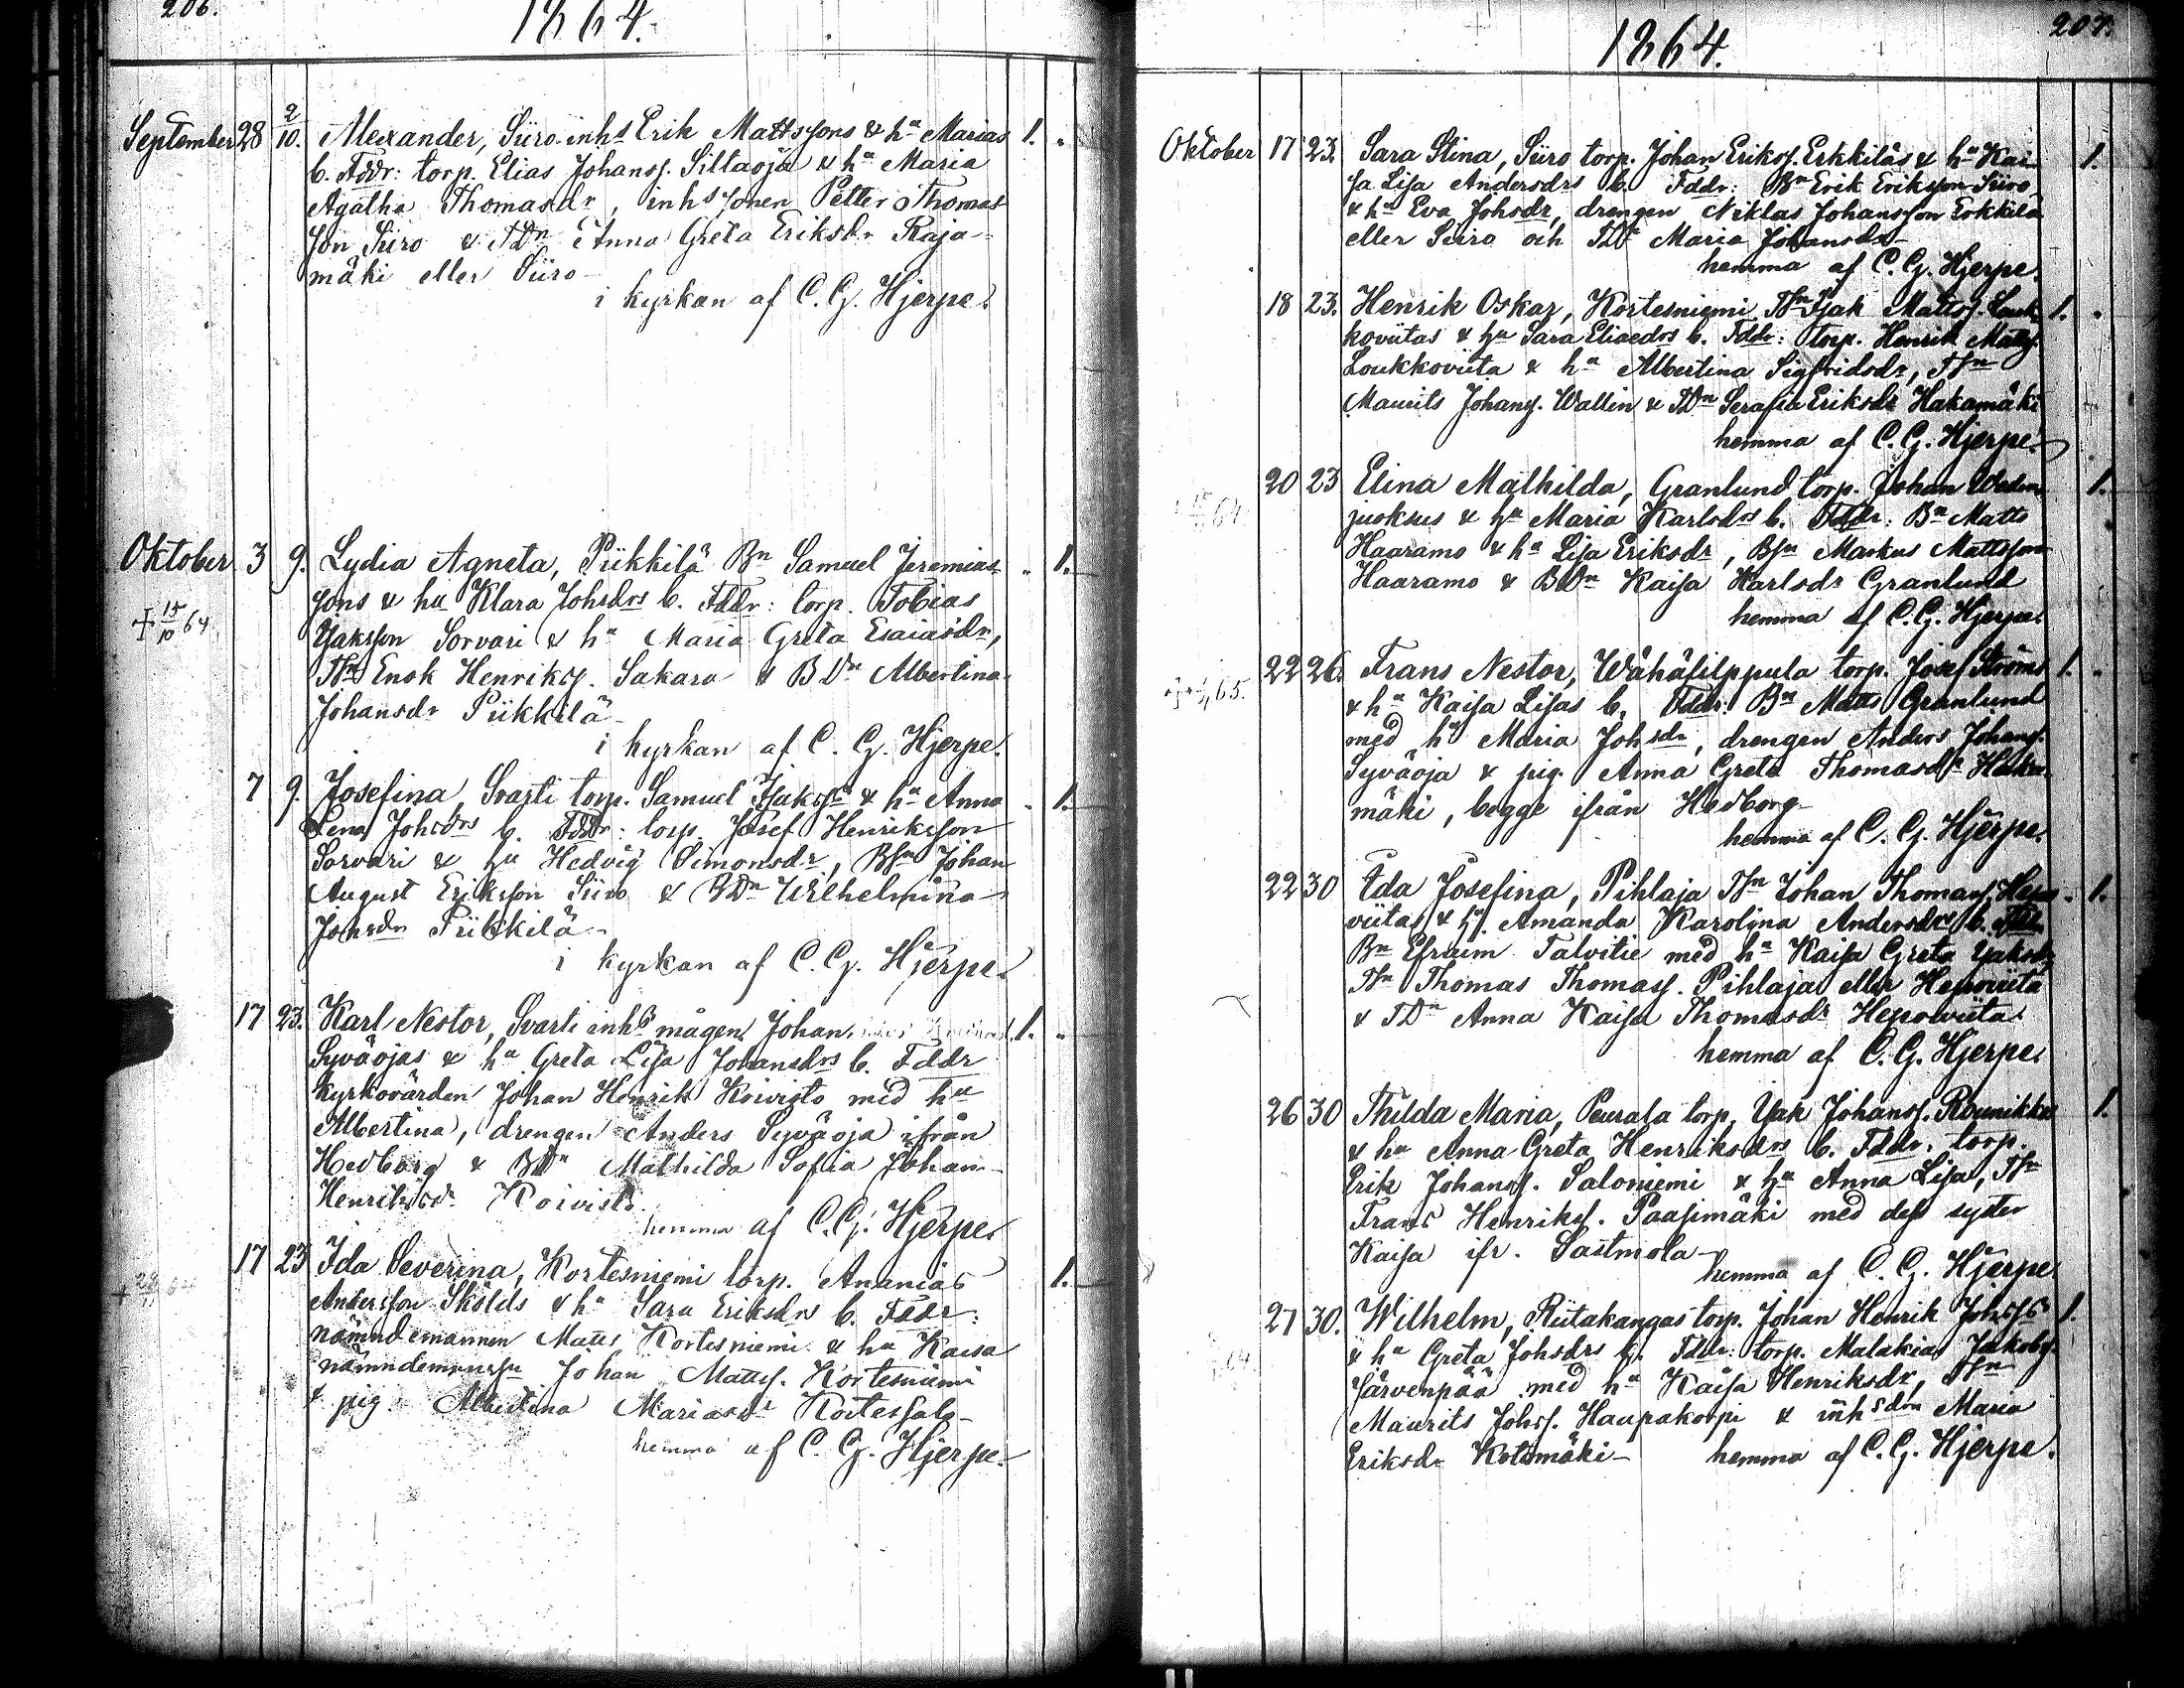 206.
1864.
September 28 2/10. Alexander, Siiro inhs Erik Mattssons & ha Marias 1.
b. Fddr: torp. Elias Johanss. Siltaoja & ha Maria
Agatha Thomasdr, inhssonen Petter Thomas
son Siiro & TDn Anna Greta Eriksdr Raja-
mäki eller Siiro
i kyrkan af C. G. Hjerpe.
Oktober 3 9. Lydia Agneta, Piikkilä Bn Samuel Jeremias 1.
sons & hu Klara Johsdrs b. Fddr: torp. Tobias
+ 15/10 64
Isaksson Sorvari & ha Maria Greta Esaiasdr,
Tsn Enok Henrikss. Sakara & BDn Albertina
Johansdr Piikkilä
i kyrkan af C. G. Hjerpe.
7 9. Josefina, Svarti torp. Samuel Isakss & ha Anna 1.
Lena Johsdrs b. Fddr: torp. Josef Henriksson
Sorvari & hu Hedvig Simonsdr, Bsn Johan
August Eriksson Siiro & BDn Wilhelmina
Johsdr Piikkilä
i kyrkan af C. G. Hjerpe.
17 23. Karl Nestor, Svarti inhs mågen Johan 1.
Syväojas & ha Greta Lisa Johansdrs b. Fddr
kyrkovärden Johan Henrik Koivisto med hu
Albertina, drengen Anders Syväoja ifrån
Hedborg & BDn Mathilda Sofia Johan
Henriksdr Koivisto.
hemma af C. G. Hjerpe
17 23 Ida Severina, Kortesniemi torp. Ananias 1.
Andersson Skölds & ha Sara Eriksdrs b. Fddr:
nämndemannen Matts Kortesniemi & hu Kaisa
nämndemanssn Johan Mattss. Kortesniemi
& pig. Albertina Mariasdr Kortessalo
hemma af C. G. Hjerpe.
207.
1864.
Oktober 17 23. Sara Stina, Siiro torp. Johan Erikss. Erkkiläs & ha Kai 1.
sa Lisa Andersdrs b. Fddr: Bn Erik Eriksson Siiro
& ha Eva Johsdr, drengen Niklas Johansson Erkkilä
eller Siiro och TDr Maria Johansdr
hemma af C. G. Hjerpe.
18 23. Henrik Oskar, Kortesniemi Tsn Isak Mattss. Louk 1.
koviitas & hu Sara Eliaedrs b. Fddr: torp. Henrik Mattss.
Loukkoviita & ha Albertina Sigfridsdr, Tsn
Maurits Johanss. Wallin & TDn Serafia Eriksdr Hakamäki
hemma af C. G. Hjerpe.
20 23 Elina Mathilda, Granlund torp. Johan Weden 1.
juoksus & hu Maria Karlsdrs b. Fddr: Bn Matts
Haaramo & ha Lisa Eriksdr, Bsn Markus Mattsson
Haaramo & BDn Kaisa Karlsdr Granlund
hemma af C. G. Hjerpe.
22 26. Frans Nestor, Wähäfilppula torp. Josef Ströms 1.
65.
& ha Kaisa Lisas b. Fddr: Bn Matts Granlund
med ha Maria Johsdr, drengen Anders Johanss.
Syväoja & pig. Anna Greta Thomasdr
mäki, begge ifrån Hedborg
hemma af C. G. Hjerpe.
22 30 Ida Josefina, Pihlaja Tsn Johan Thomass. Hepo 1.
viitas & hu Amanda Karolina Andersdrs b. Fddr
Bn Efraim Talvitie med ha Kaisa Greta Isaksdr,
Tsn Thomas Thomass. Pihlaja eller Hepoviita
& TDn Anna Kaisa Thomasdr Hepoviita.
hemma af C. G. Hjerpe.
26 30 Thilda Maria, Peurala torp. Isak Johanss. Rounikko 1.
& hu Anna Greta Henriksdrs b. Fddr. torp.
Erik Johanss. Saloniemi & hu Anna Lisa, Tsn
Frans Henrikss. Paasimäki med dess syster
Kaisa ifr. Sastmola
hemma af C. G. Hjerpe
27 30. Wilhelm, Riitakangas torp. Johan Henrik Johss 1.
& ha Greta Johsdrs b. Fddr: torp. Malakias Jakobss.
Järvenpää med ha Kaisa Henriksdr, Tsn
Maurits Johss. Haapakorpi & inhsdrn Maria
Eriksdr Kotomäki hemma af C. G. Hjerpe.